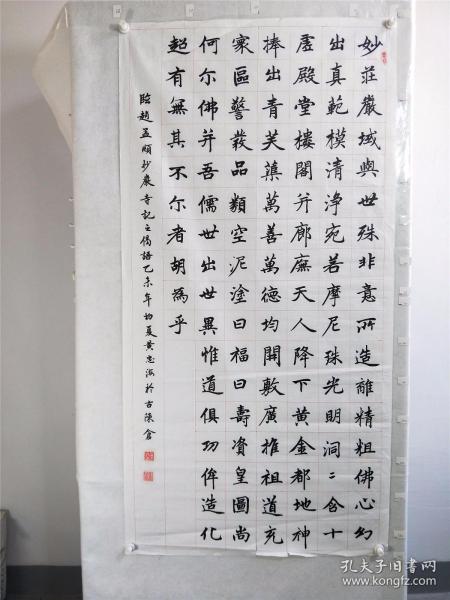 妙莊嚴域與世殊非意所造離精粗佛心幻
出真範模清淨宛若摩尼珠光明洞二含十
虛殿堂樓閣并廊廡天人降下黃金都地神
捧出青芙蕖萬善萬德均開敷廣推祖道充
寰區警發品類空泥塗曰福曰壽資皇圖尚
何尔佛并吾儒世出世異惟道俱功侔造化
超有無其不尔者胡為乎
臨趙孟頫妙嚴寺記之偈語乙未年初夏黃忠海於古陳倉
孔夫子旧书网
www.kongfz.com